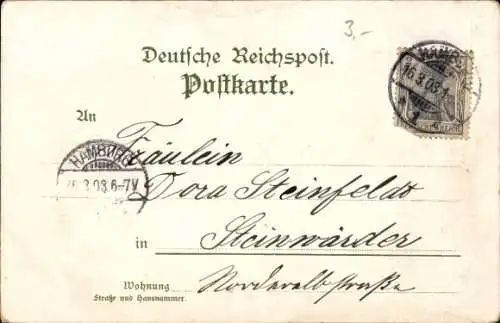 3,-
Deutsche Reichspost.
Postkarte.
HAMBURG
16.3.03.
1
An
Fräulein
HAMBURG
3.03.6-7V
Dora Steinfeldt
in
Steinwärder
Wohnung
Straße und Hausnummer.
Norderelbstraße